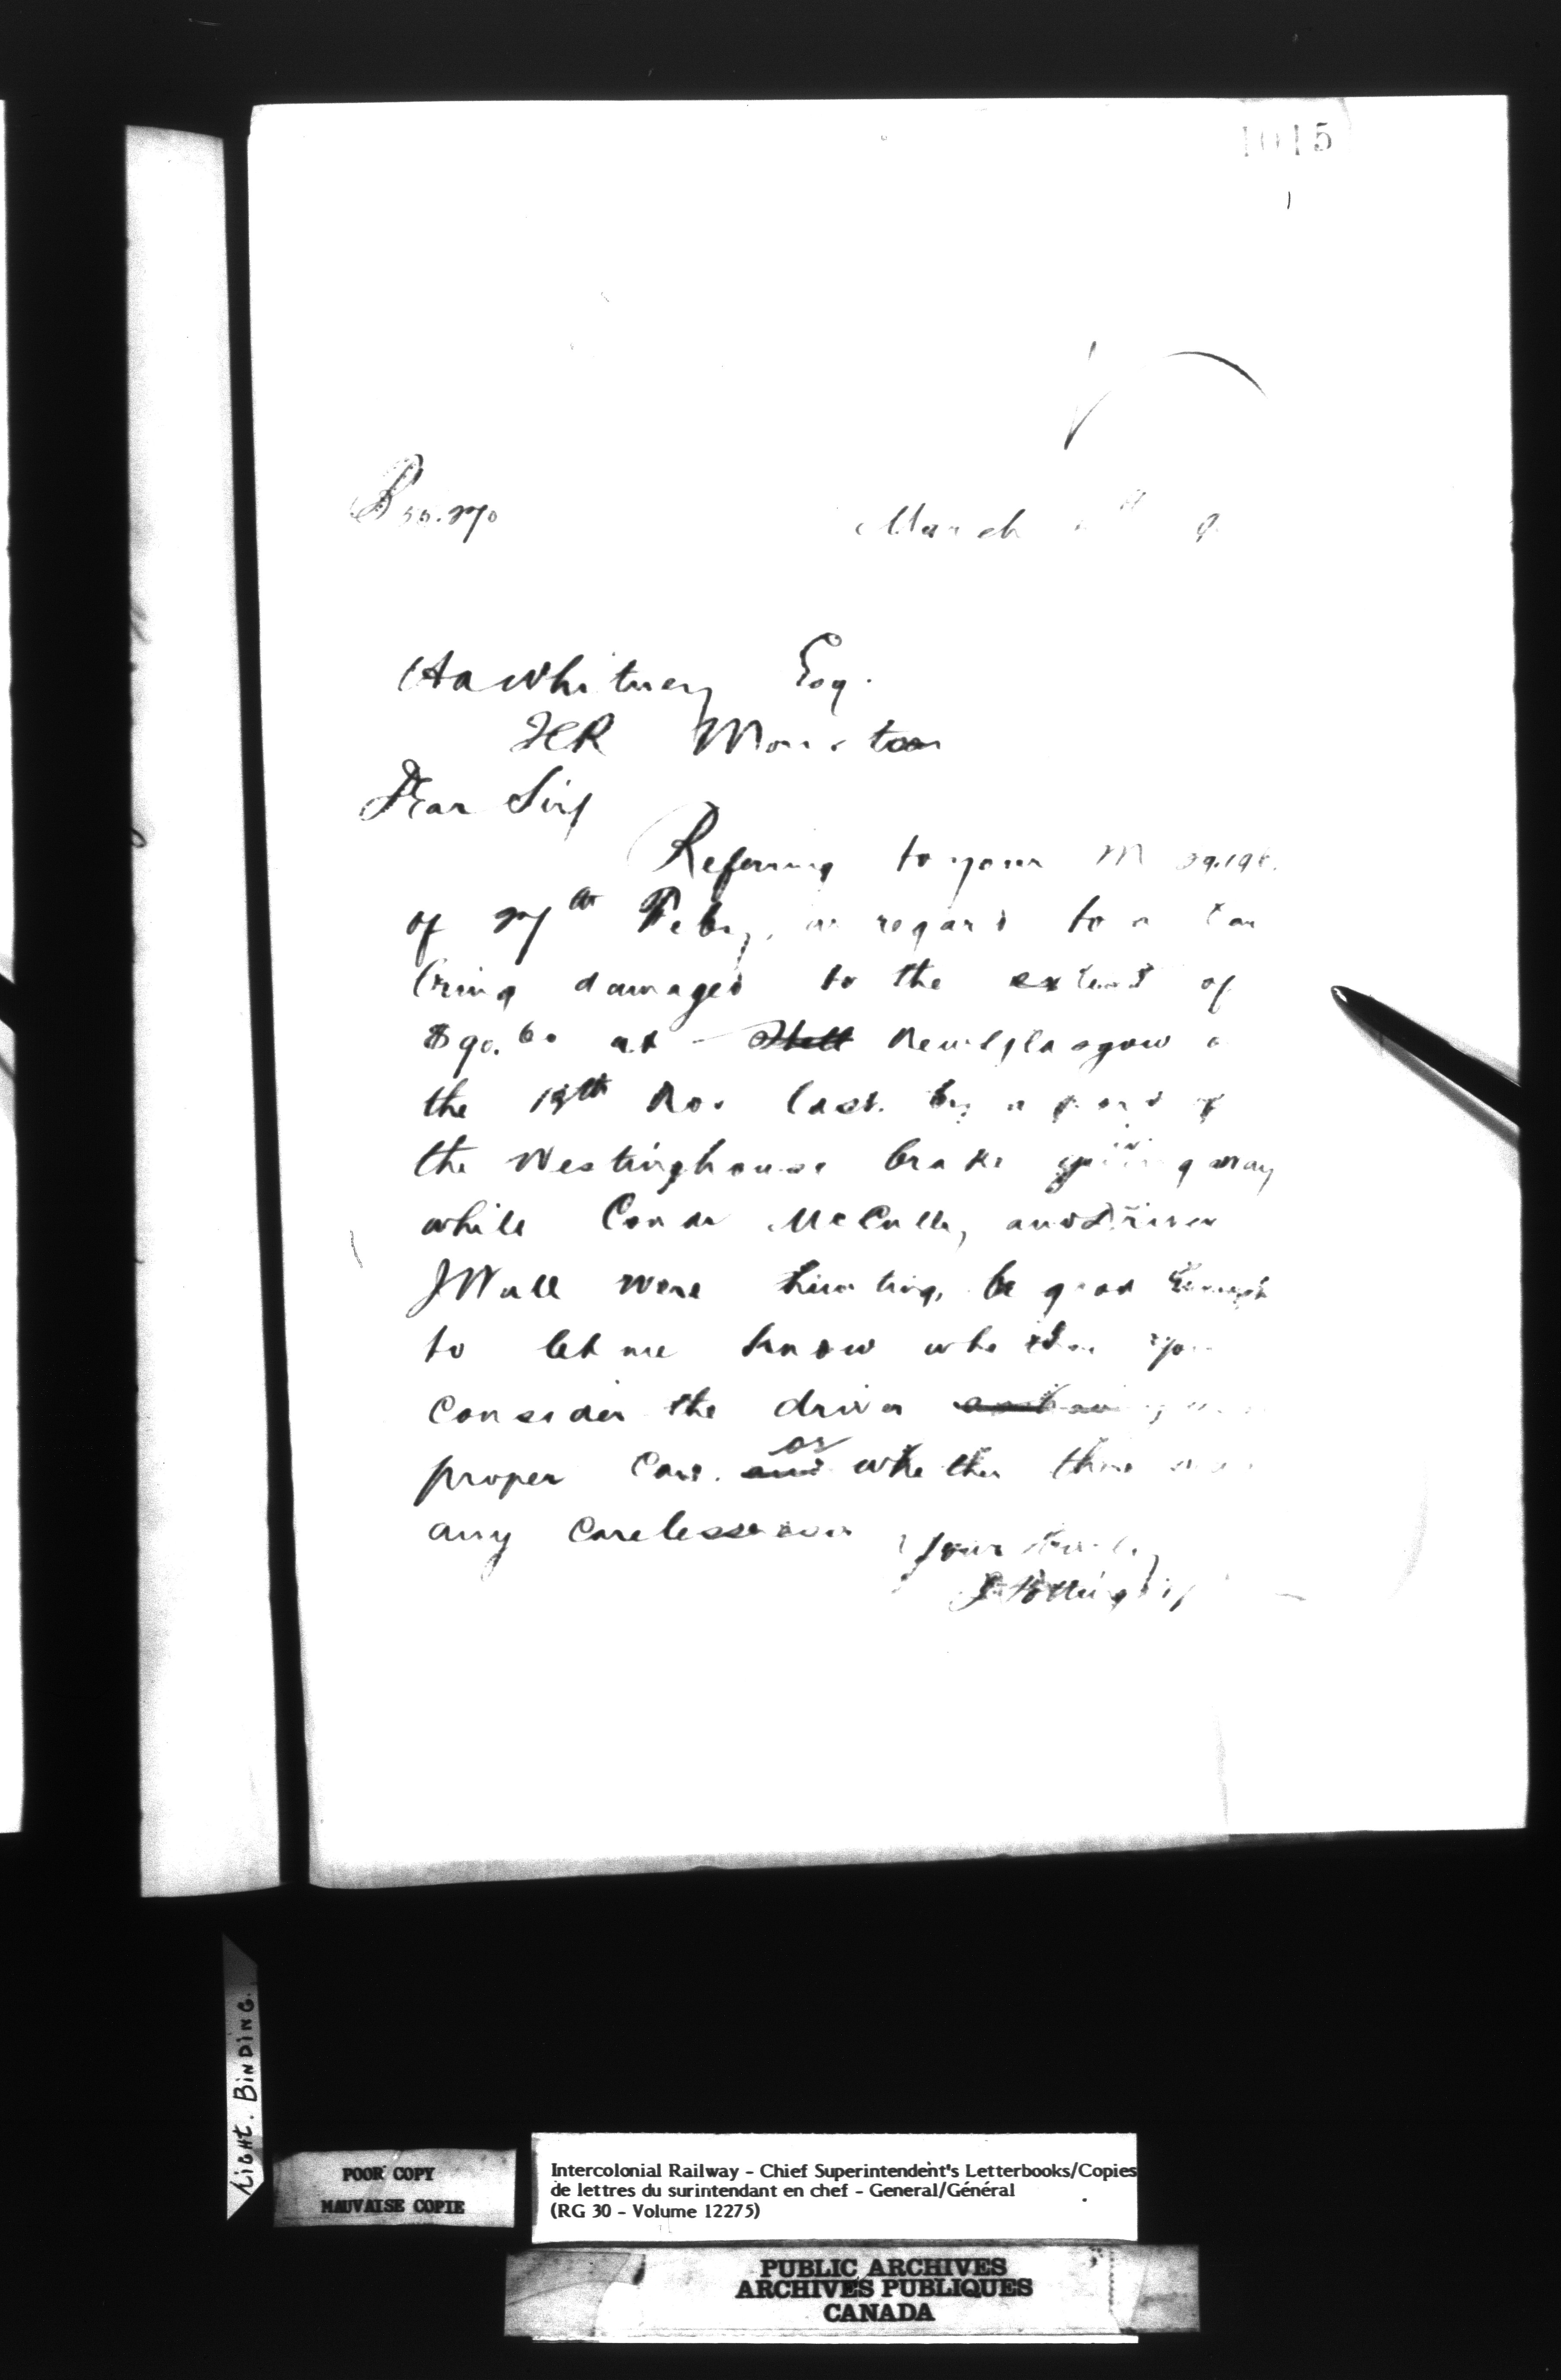 1015
March
Whitney Esq.
ICR Moncton
Dear Sir,
Referring to your M
of 27th Feby, in regard to a Car
being damaged to the extent of
$90.60 at New Glasgow
the 13th Nov last. by a part of
the Westinghouse brake giving way
while Condr McCully and Driver
J Wall were shunting, be good enough
to let me know whether you
consider the driver
proper care. or whether there was
any carelessness
Yours truly
D Pottinger
LIGHT. BINDING.
POOR COPY
MAUVAISE COPIE
Intercolonial Railway - Chief Superintendent's Letterbooks/Copies
de lettres du surintendant en chef - General/Général
(RG 30 - Volume 12275)
PUBLIC ARCHIVES
ARCHIVES PUBLIQUES
CANADA